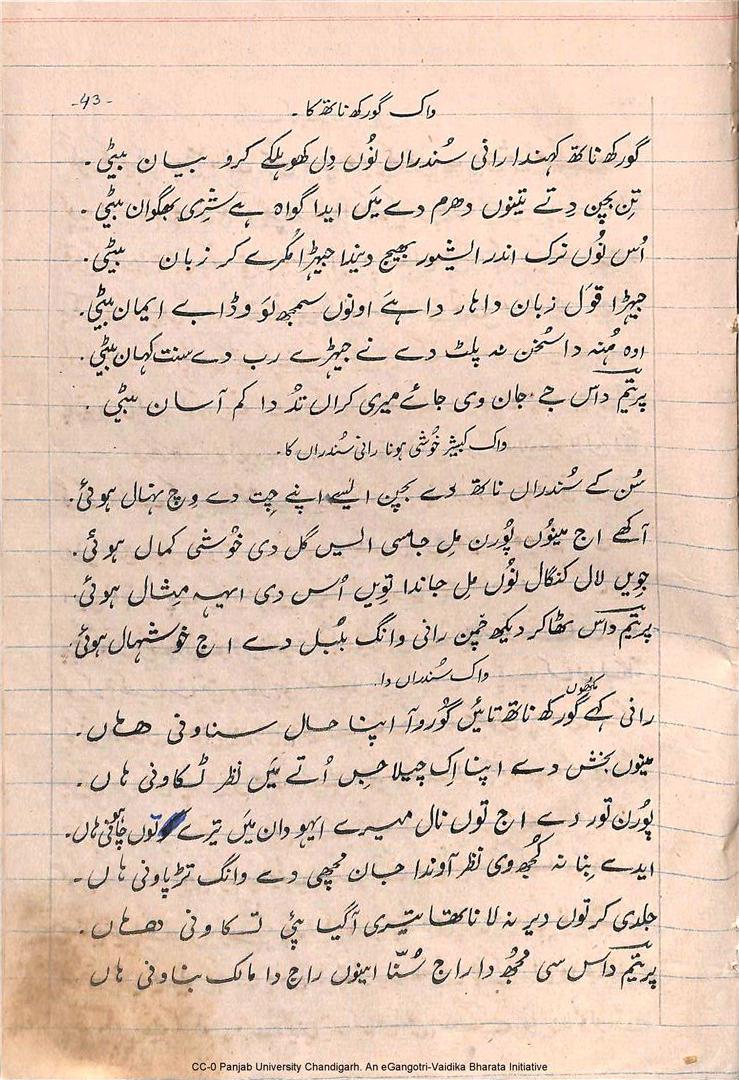 -43-
واک گورکھ ناتھ کا۔
گورکھ ناتھ کہندا رانی سُندراں نُوں دِل کھولکے کرو بیان بیٹی۔
تِن بچن دِتے تینوں دھرم دے مَیں ایدا گواہ ہے شِری بھگوان بیٹی۔
اُس نُوں نرک اندر ایشور بھیج دیندا جیہڑا مُکرے کر زبان بیٹی۔
جیہڑا قول زبان دا ہار دا ہے اونوں سمجھ لَو وڈا بے ایمان بیٹی۔
اوہ مُنہ دا سُخن نہ پلٹ دے نے جیہڑے رب دے سنت کہان بیٹی۔
پریتم داس جے جان وی جائے میری کراں تد دا کم آسان بیٹی۔
واک کبیشر خُوشی ہونا رانی سُندراں کا۔
سُن کے سُندراں ناتھ دے بچن ایسے اپنے چِت دے وِچ نہال ہوئی۔
آکھے اج مینُوں پُورن مِل جاسی ایس گل دی خُوشی کمال ہوئی۔
جویں لال کنگال نُوں مِل جاندا تویں اُس دی ایہہ مِثال ہوئی۔
پریتم داس ٹھاکر دیکھ چمن رانی وانگ بُلبل دے اج خوشہال ہوئی۔
واک سُندراں دا۔
رانی کہے گورکھ ناتھ تائیں گُورو آ اپنا حال سناونی ھاں۔
مینوں بخش دے اپنا اِک چیلا جِس اُتے مَیں نظر ٹکاونی ہاں۔
پُورن تور دے اج توں نال میرے ایہو دان مَیں تیرے توں چاہونی ہاں۔
ایدے بِنا نہ کُجھ وی نظر آوندا جان مچھی دے وانگ تڑپاونی ہاں۔
جلدی کر توں دیر نہ لا ناتھا تیری آگیا پئی تکاونی ھاں۔
پریتم داس سی مُجھ دا راج سُنّا اینوں راج دا مالک بناونی ہاں
CC-0 Panjab University Chandigarh. An eGangotri-Vaidika Bharata Initiative